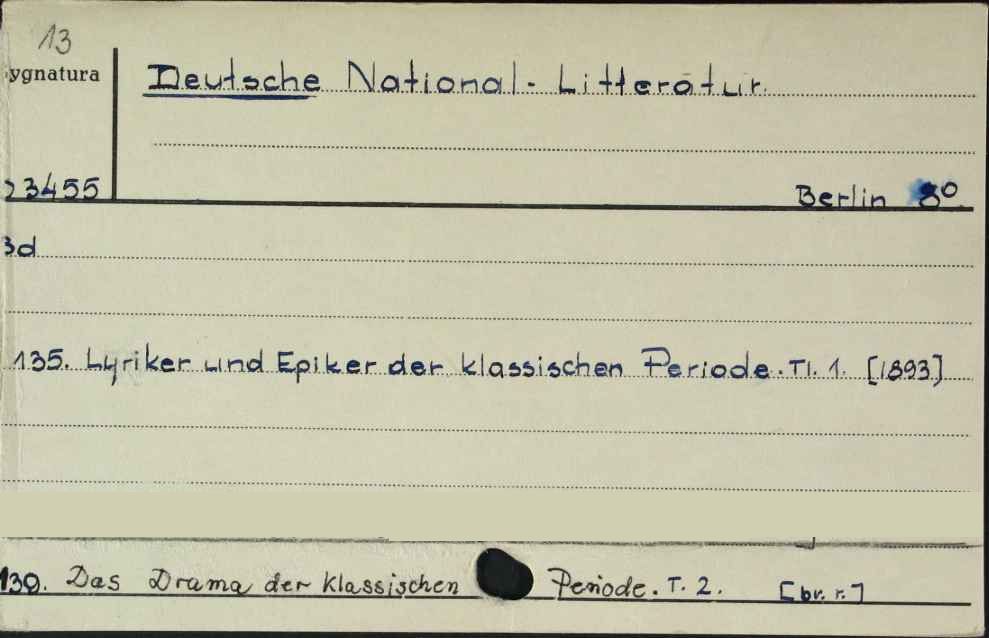 13
ygnatura
Deutsche National-Litteratur.
23455
Berlin 8º.
Bd
135. Lyriker und Epiker der klassischen Periode. Tl. 1. [1893]
139. Das Drama der klassischen Periode. T. 2. [br. r.]